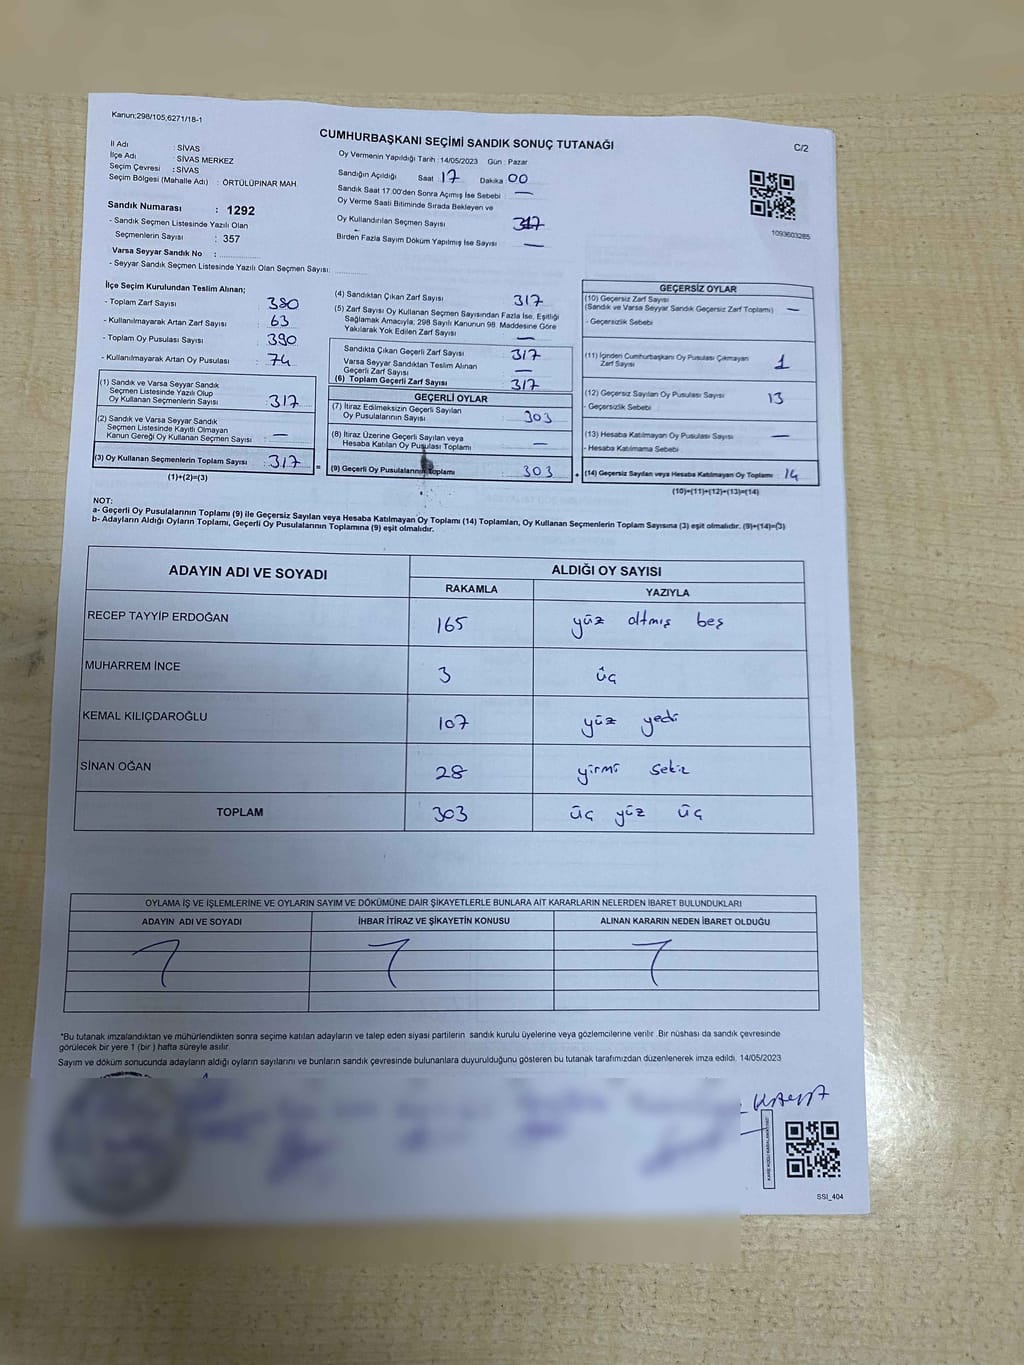 Kanun:298/105,6271/18-1
CUMHURBAŞKANI SEÇİMİ SANDIK SONUÇ TUTANAĞI
C/2
İl Adı : SİVAS
İlçe Adı : SİVAS MERKEZ
Seçim Çevresi : SİVAS
Seçim Bölgesi (Mahalle Adı) : ÖRTÜLÜPINAR MAH.
Sandık Numarası : 1292
- Sandık Seçmen Listesinde Yazılı Olan
Seçmenlerin Sayısı : 357
Varsa Seyyar Sandık No :
- Seyyar Sandık Seçmen Listesinde Yazılı Olan Seçmen Sayısı:
Oy Vermenin Yapıldığı Tarih :14/05/2023 Gün : Pazar
Sandığın Açıldığı Saat 17 Dakika 00
Sandık Saat 17.00'den Sonra Açılmış İse Sebebi —
Oy Verme Saati Bitiminde Sırada Bekleyen ve
Oy Kullandırılan Seçmen Sayısı
Birden Fazla Sayım Döküm Yapılmış İse Sayısı —
1093603285
İlçe Seçim Kurulundan Teslim Alınan;
- Toplam Zarf Sayısı : 380
- Kullanılmayarak Artan Zarf Sayısı : 63
- Toplam Oy Pusulası Sayısı : 390
- Kullanılmayarak Artan Oy Pusulası : 74
(1) Sandık ve Varsa Seyyar Sandık
Seçmen Listesinde Yazılı Olup
Oy Kullanan Seçmenlerin Sayısı : 317
(2) Sandık ve Varsa Seyyar Sandık
Seçmen Listesinde Kayıtlı Olmayan
Kanun Gereği Oy Kullanan Seçmen Sayısı : —
(3) Oy Kullanan Seçmenlerin Toplam Sayısı : 317
(1)+(2)=(3)
(4) Sandıktan Çıkan Zarf Sayısı : 317
(5) Zarf Sayısı Oy Kullanan Seçmen Sayısından Fazla İse, Eşitliği
Sağlamak Amacıyla; 298 Sayılı Kanunun 98. Maddesine Göre
Yakılarak Yok Edilen Zarf Sayısı : —
Sandıkta Çıkan Geçerli Zarf Sayısı : 317
Varsa Seyyar Sandıktan Teslim Alınan
Geçerli Zarf Sayısı : —
(6) Toplam Geçerli Zarf Sayısı : 317
GEÇERLİ OYLAR
(7) İtiraz Edilmeksizin Geçerli Sayılan
Oy Pusulalarının Sayısı : 303
(8) İtiraz Üzerine Geçerli Sayılan veya
Hesaba Katılan Oy Pusulası Toplamı : —
= (9) Geçerli Oy Pusulalarının Toplamı : 303
GEÇERSİZ OYLAR
(10) Geçersiz Zarf Sayısı
(Sandık ve Varsa Seyyar Sandık Geçersiz Zarf Toplamı) : —
- Geçersizlik Sebebi :
(11) İçinden Cumhurbaşkanı Oy Pusulası Çıkmayan
Zarf Sayısı : 1
(12) Geçersiz Sayılan Oy Pusulası Sayısı : 13
- Geçersizlik Sebebi :
(13) Hesaba Katılmayan Oy Pusulası Sayısı : —
- Hesaba Katılmama Sebebi :
+ (14) Geçersiz Sayılan veya Hesaba Katılmayan Oy Toplamı : 14
(10)+(11)+(12)+(13)=(14)
NOT:
a- Geçerli Oy Pusulalarının Toplamı (9) ile Geçersiz Sayılan veya Hesaba Katılmayan Oy Toplamı (14) Toplamları, Oy Kullanan Seçmenlerin Toplam Sayısına (3) eşit olmalıdır. (9)+(14)=(3)
b- Adayların Aldığı Oyların Toplamı, Geçerli Oy Pusulalarının Toplamına (9) eşit olmalıdır.
ADAYIN ADI VE SOYADI
ALDIĞI OY SAYISI
RAKAMLA YAZIYLA
RECEP TAYYİP ERDOĞAN 165 yüz altmış beş
MUHARREM İNCE 3 üç
KEMAL KILIÇDAROĞLU 107 yüz yedi
SİNAN OĞAN 28 yirmi sekiz
TOPLAM 303 üç yüz üç
OYLAMA İŞ VE İŞLEMLERİNE VE OYLARIN SAYIM VE DÖKÜMÜNE DAİR ŞİKAYETLERLE BUNLARA AİT KARARLARIN NELERDEN İBARET BULUNDUKLARI
ADAYIN ADI VE SOYADI İHBAR İTİRAZ VE ŞİKAYETİN KONUSU ALINAN KARARIN NEDEN İBARET OLDUĞU
*Bu tutanak imzalandıktan ve mühürlendikten sonra seçime katılan adayların ve talep eden siyasi partilerin sandık kurulu üyelerine veya gözlemcilerine verilir .Bir nüshası da sandık çevresinde
görülecek bir yere 1 (bir ) hafta süreyle asılır.
Sayım ve döküm sonucunda adayların aldığı oyların sayılarını ve bunların sandık çevresinde bulunanlara duyurulduğunu gösteren bu tutanak tarafımızdan düzenlenerek imza edildi. 14/05/2023
SSI_404